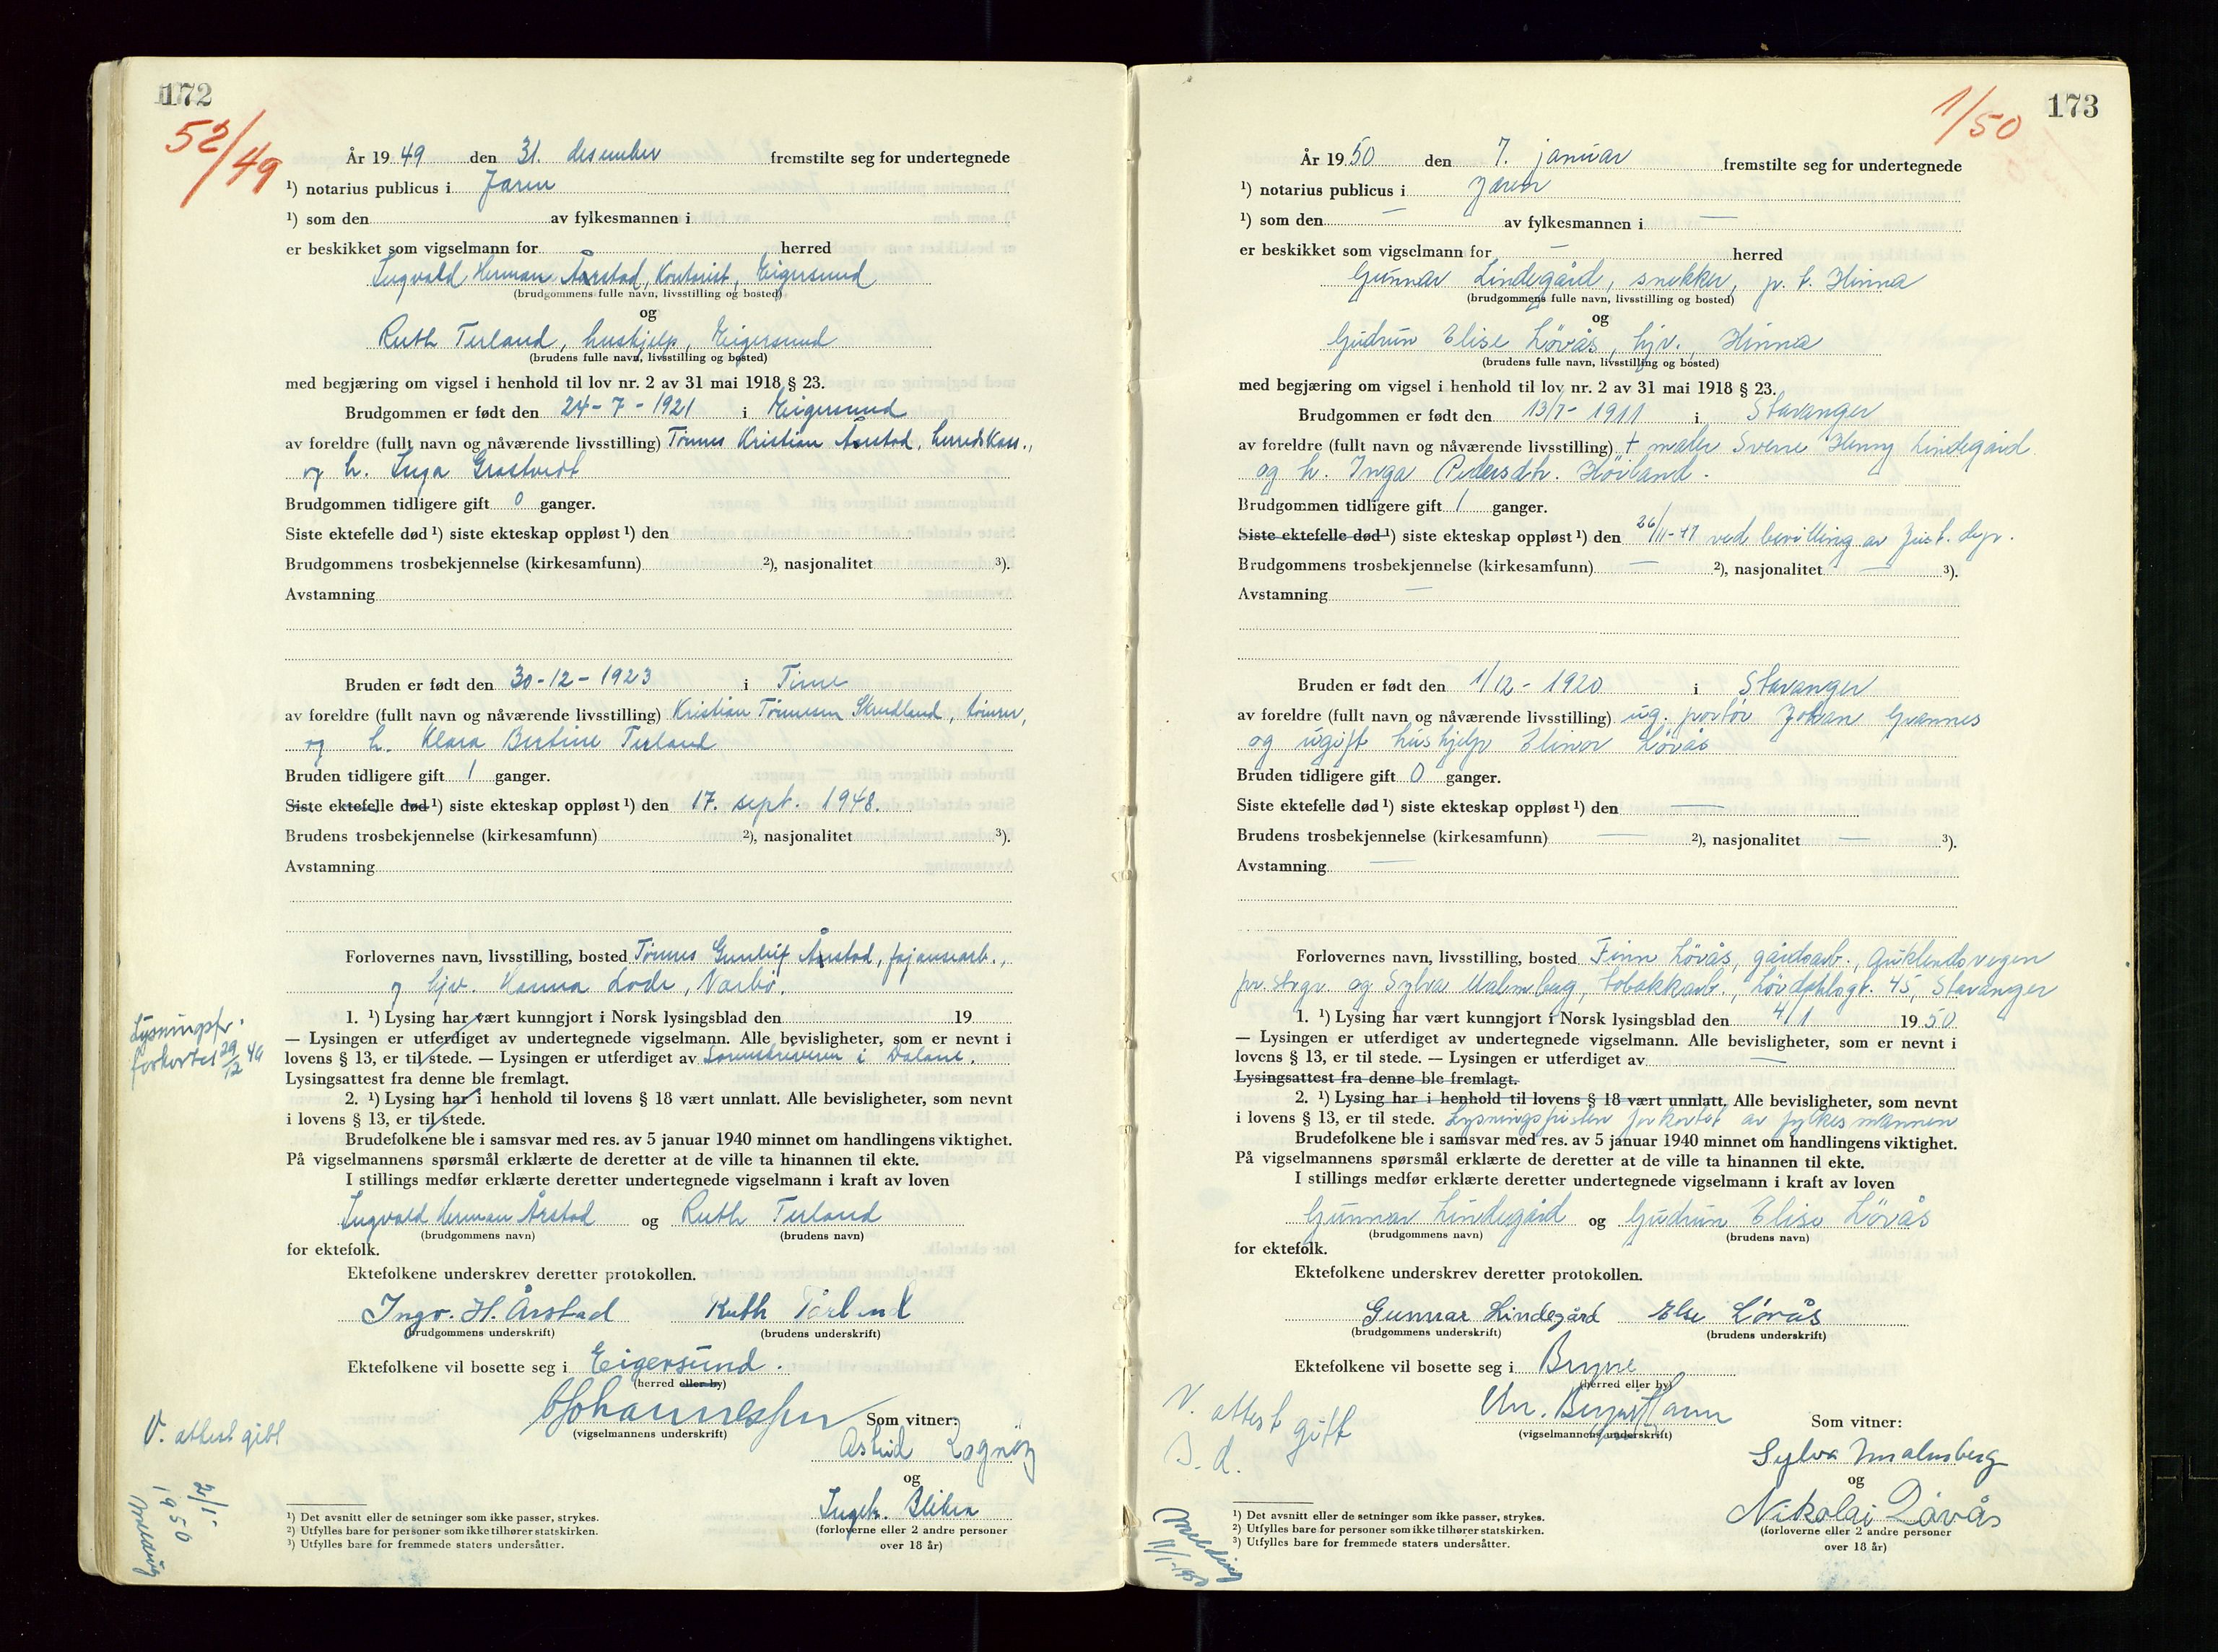 172
52/49
År 1949 den 31. desember fremstilte seg for undertegnede
¹) notarius publicus i Jæren
¹) som den av fylkesmannen i
er beskikket som vigselmann for herred
Ingvald Herman Årstad, kontorist, Eigersund
(brudgommens fulle navn, livsstilling og bosted)
og
Ruth Terland, hushjelp, Eigersund
(brudens fulle navn, livsstilling og bosted)
med begjæring om vigsel i henhold til lov nr. 2 av 31 mai 1918 § 23.
Brudgommen er født den 24-7-1921 i Eigersund
av foreldre (fullt navn og nåværende livsstilling) Tønnes Kristian Årstad, herredskass.,
og h. Inga Grastveit
Brudgommen tidligere gift 0 ganger.
Siste ektefelle død ¹) siste ekteskap oppløst ¹) den
Brudgommens trosbekjennelse (kirkesamfunn) ²), nasjonalitet ³).
Avstamning
Bruden er født den 30-12-1923 i Time
av foreldre (fullt navn og nåværende livsstilling) Kristian Tønnesen Skrudland, tømrer,
og h. Klara Bertine Terland
Bruden tidligere gift 1 ganger.
Siste ektefelle død ¹) siste ekteskap oppløst ¹) den 17. sept. 1948.
Brudens trosbekjennelse (kirkesamfunn) ²), nasjonalitet ³).
Avstamning
Forlovernes navn, livsstilling, bosted Tønnes Gunleif Årstad, fajansearb.,
og hjv. Hanna Lode, Nærbø.
1. ¹) Lysing har vært kunngjort i Norsk lysingsblad den 19
— Lysingen er utferdiget av undertegnede vigselmann. Alle bevisligheter, som er nevnt i
lovens § 13, er til stede. — Lysingen er utferdiget av Sorenskriveren i Dalane.
Lysingsattest fra denne ble fremlagt.
2. ¹) Lysing har i henhold til lovens § 18 vært unnlatt. Alle bevisligheter, som nevnt
i lovens § 13, er til stede.
Lysningsfr.
forkortet 29/12 49
Brudefolkene ble i samsvar med res. av 5 januar 1940 minnet om handlingens viktighet.
På vigselmannens spørsmål erklærte de deretter at de ville ta hinannen til ekte.
I stillings medfør erklærte deretter undertegnede vigselmann i kraft av loven
Ingvald Herman Årstad og Ruth Terland
(brudgommens navn) (brudens navn)
for ektefolk.
Ektefolkene underskrev deretter protokollen.
Ingv. H. Årstad Ruth Tærland
(brudgommens underskrift) (brudens underskrift)
Ektefolkene vil bosette seg i Eigersund.
(herred eller by)
Johannessen Som vitner:
(vigselmannens underskrift)
Astrid
og
Ingebr.
(forloverne eller 2 andre personer
over 18 år)
V. attest gitt
2/1-
1950
Melding
¹) Det avsnitt eller de setninger som ikke passer, strykes.
²) Utfylles bare for personer som ikke tilhører statskirken.
³) Utfylles bare for fremmede staters undersåtter.
173
1/50
År 1950 den 7. januar fremstilte seg for undertegnede
¹) notarius publicus i Jæren
¹) som den — av fylkesmannen i —
er beskikket som vigselmann for — herred
Gunnar Lindegård, snekker, p. t. Hinna
(brudgommens fulle navn, livsstilling og bosted)
og
Gudrun Elise Løvås, hjv., Hinna
(brudens fulle navn, livsstilling og bosted)
med begjæring om vigsel i henhold til lov nr. 2 av 31 mai 1918 § 23.
Brudgommen er født den 13/7-1911 i Stavanger
av foreldre (fullt navn og nåværende livsstilling) † maler Sverre Henny Lindegård
og h. Inga Pedersdtr. Hörland.
Brudgommen tidligere gift 1 ganger.
Siste ektefelle død ¹) siste ekteskap oppløst ¹) den 26/11-47 ved bevilling av Just. dep.
Brudgommens trosbekjennelse (kirkesamfunn) — ²), nasjonalitet — ³).
Avstamning —
Bruden er født den 1/12-1920 i Stavanger
av foreldre (fullt navn og nåværende livsstilling) ug. portør Johan Grannes
og ugift hushjelp Elinor Løvås
Bruden tidligere gift 0 ganger.
Siste ektefelle død ¹) siste ekteskap oppløst ¹) den —
Brudens trosbekjennelse (kirkesamfunn) — ²), nasjonalitet — ³).
Avstamning —
Forlovernes navn, livsstilling, bosted Finn Løvås, gårdsarb., Auklendsvegen
pr. Stvgr. og Sylva Malmberg, tobakkarb., Løvdahlsgt. 45, Stavanger
1. ¹) Lysing har vært kunngjort i Norsk lysingsblad den 4/1 1950
— Lysingen er utferdiget av undertegnede vigselmann. Alle bevisligheter, som er nevnt i
lovens § 13, er til stede. — Lysingen er utferdiget av —
Lysingsattest fra denne ble fremlagt.
2. ¹) Lysing har i henhold til lovens § 18 vært unnlatt. Alle bevisligheter, som nevnt
i lovens § 13, er til stede. Lysningsfristen forkortet av fylkesmannen
Brudefolkene ble i samsvar med res. av 5 januar 1940 minnet om handlingens viktighet.
På vigselmannens spørsmål erklærte de deretter at de ville ta hinannen til ekte.
I stillings medfør erklærte deretter undertegnede vigselmann i kraft av loven
Gunnar Lindegård og Gudrun Elise Løvås
(brudgommens navn) (brudens navn)
for ektefolk.
Ektefolkene underskrev deretter protokollen.
Gunnar Lindegård Else Løvås
(brudgommens underskrift) (brudens underskrift)
Ektefolkene vil bosette seg i Bryne
(herred eller by)
Chr. Som vitner:
(vigselmannens underskrift)
Sylva Malmberg
og
Nikolai Løvås
(forloverne eller 2 andre personer
over 18 år)
V. attest gitt
s. d.
Melding
11/1-1950
¹) Det avsnitt eller de setninger som ikke passer, strykes.
²) Utfylles bare for personer som ikke tilhører statskirken.
³) Utfylles bare for fremmede staters undersåtter.